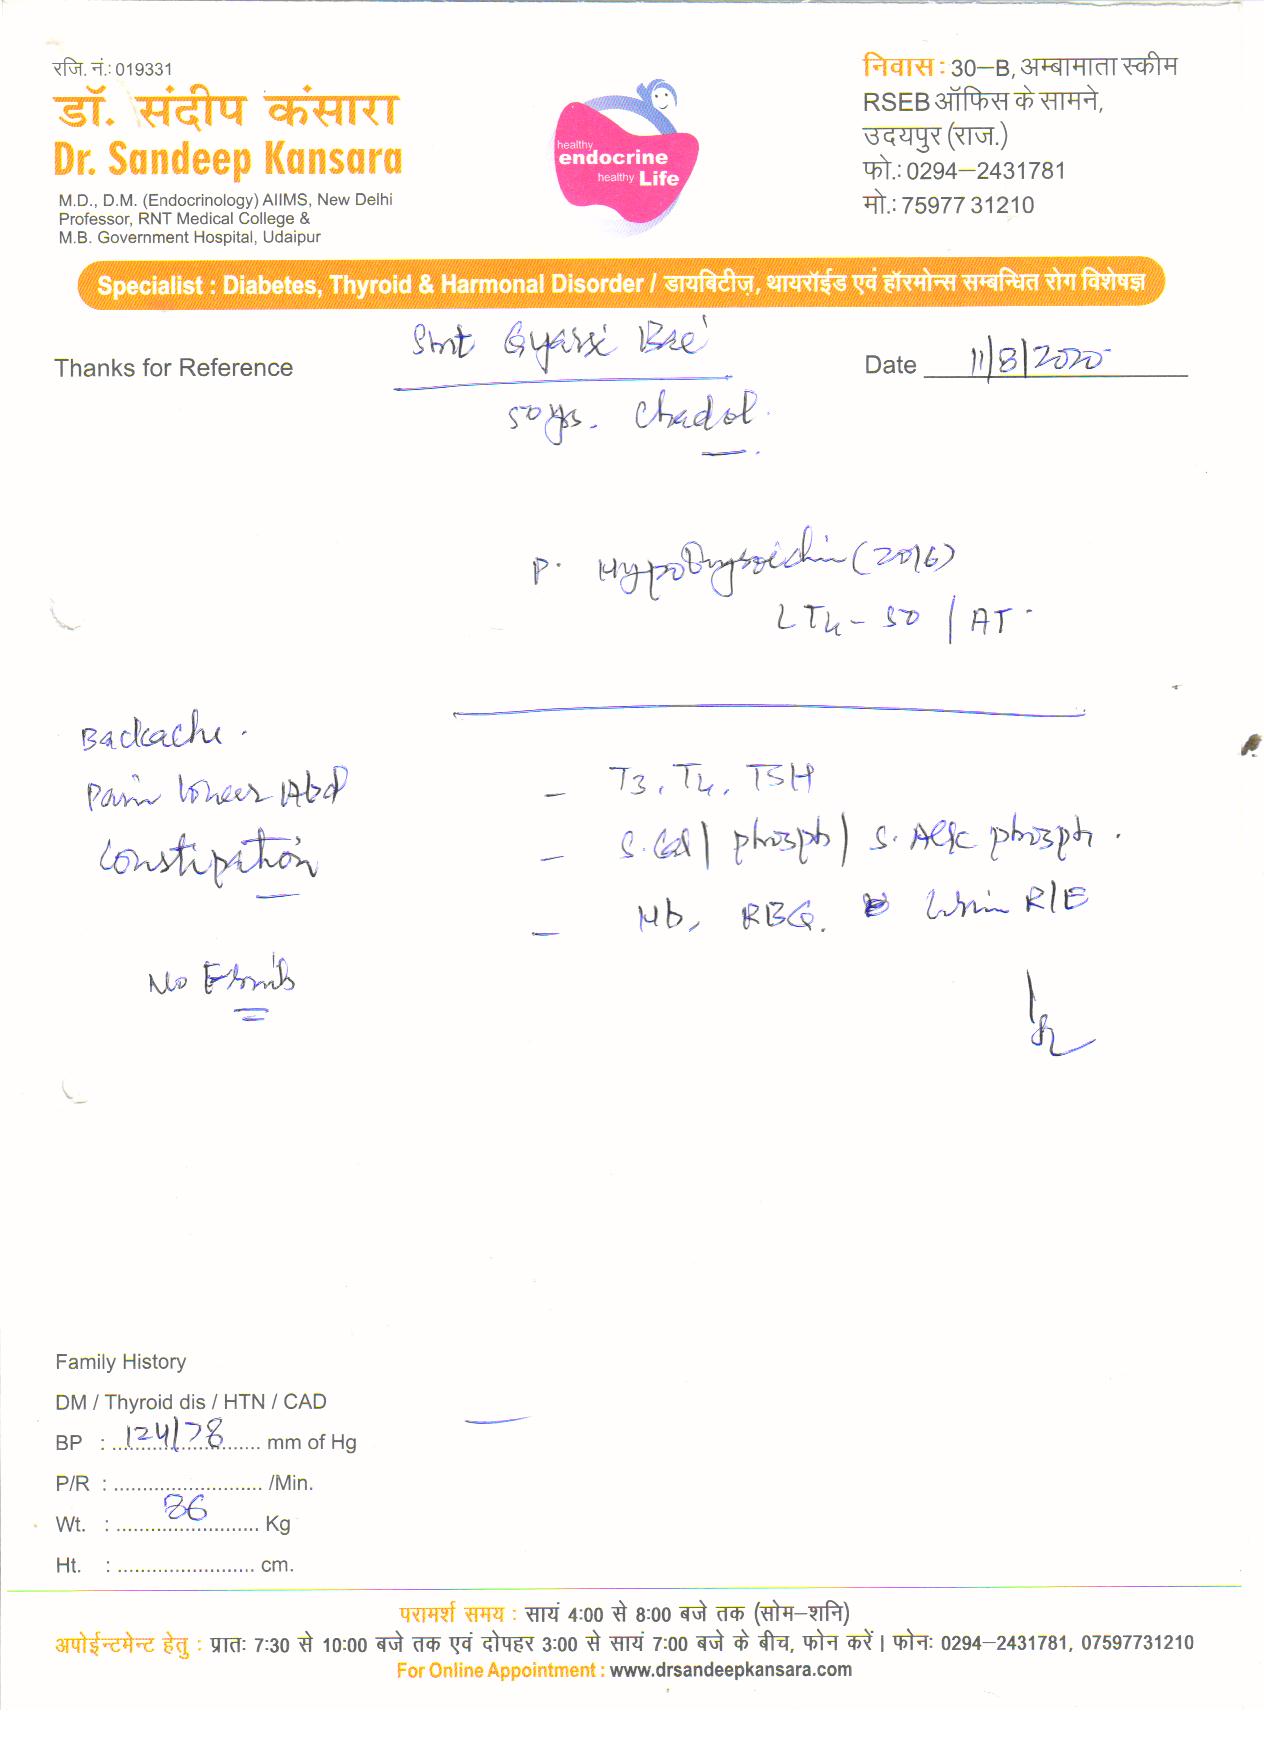 रजि. नं.: 019331
डॉ. संदीप कंसारा
Dr. Sandeep Kansara
M.D., D.M. (Endocrinology) AIIMS, New Delhi
Professor, RNT Medical College &
M.B. Government Hospital, Udaipur
healthy
endocrine
healthy Life
निवास : 30–B, अम्बामाता स्कीम
RSEB ऑफिस के सामने,
उदयपुर (राज.)
फो.: 0294–2431781
मो.: 75977 31210
Specialist : Diabetes, Thyroid & Harmonal Disorder / डायबिटीज़, थायरॉईड एवं हॉरमोन्स सम्बन्धित रोग विशेषज्ञ
Smt Gyarsi Bai
Thanks for Reference
Date 11/8/2020
50 yrs.
P. Hypothyroidism (2016)
LT4 - 50 / AT
Backache.
Pain lower Abd
Constipation
- T3, T4, TSH
- S. Cal / phosph / S. Alk phosph.
- Hb, RBG, Urin R/E
No
Family History
DM / Thyroid dis / HTN / CAD
BP : 124/78 mm of Hg
P/R : ......................... /Min.
Wt. : 86 Kg
Ht. : ....................... cm.
परामर्श समय : सायं 4:00 से 8:00 बजे तक (सोम–शनि)
अपोईन्टमेन्ट हेतु : प्रातः 7:30 से 10:00 बजे तक एवं दोपहर 3:00 से सायं 7:00 बजे के बीच, फोन करें। फोनः 0294–2431781, 07597731210
For Online Appointment : www.drsandeepkansara.com